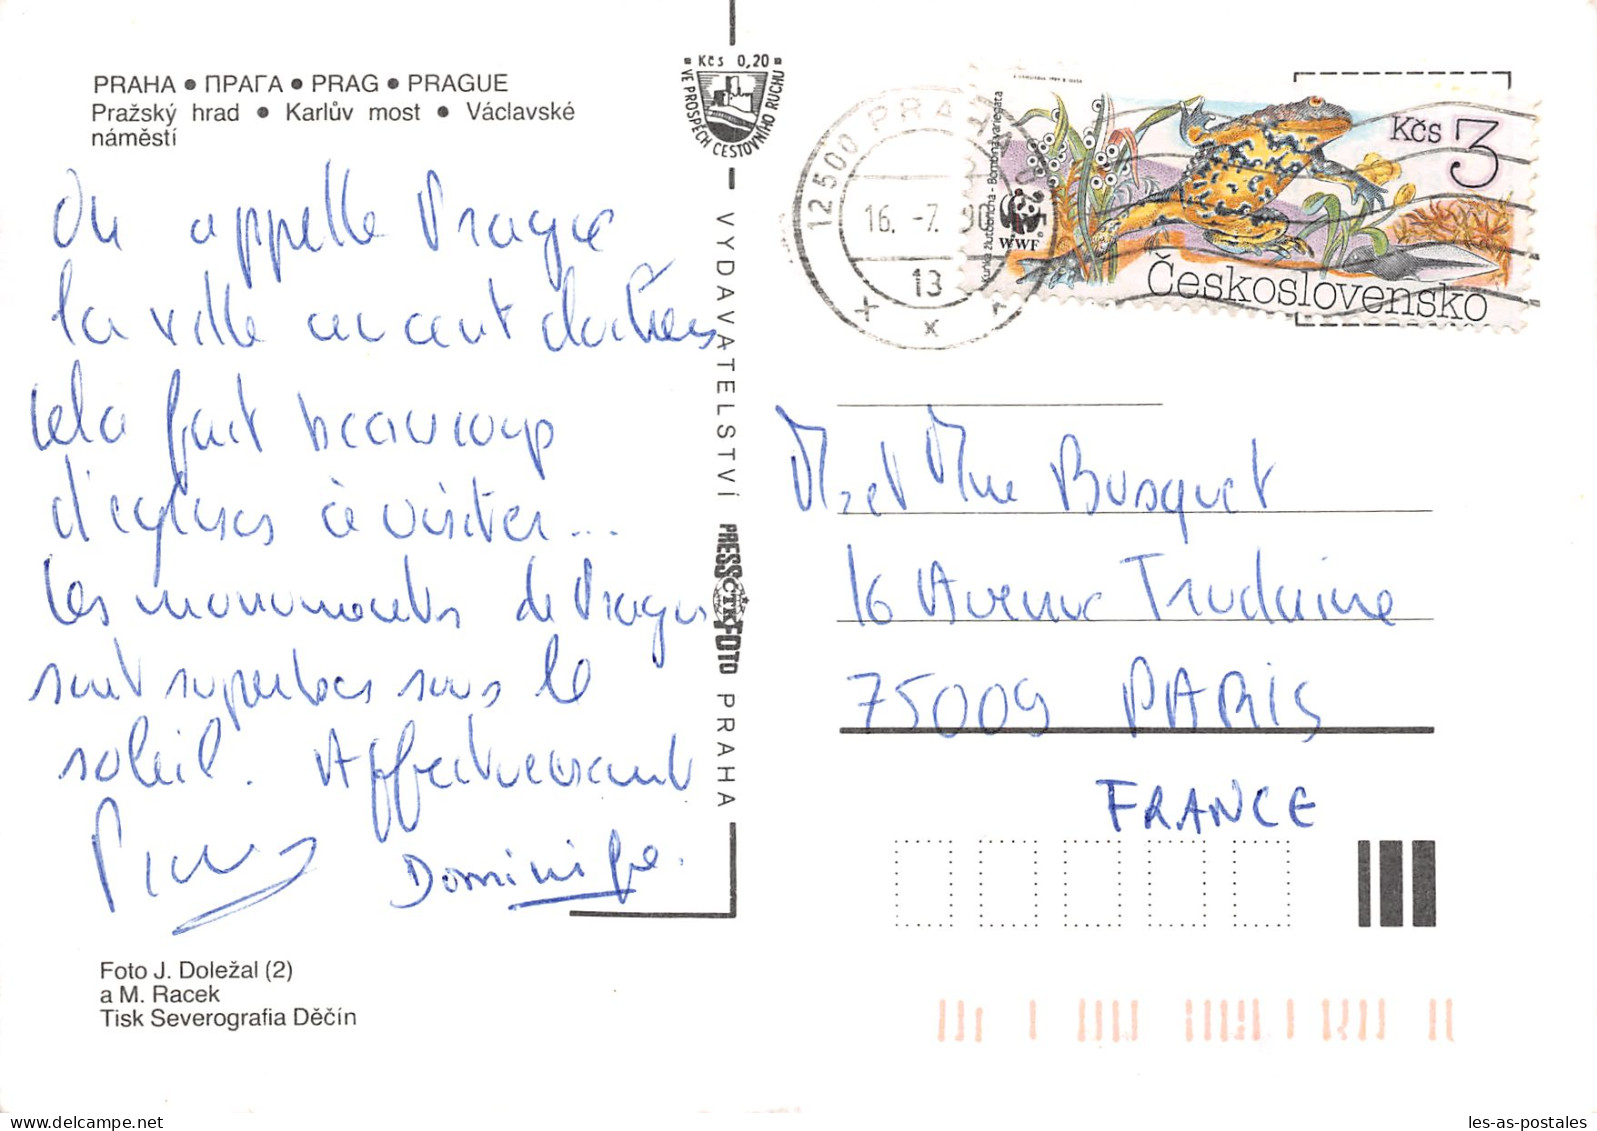 PRAHA • ПРАГА • PRAG • PRAGUE
Pražský hrad • Karlův most • Václavské
náměstí
On appelle Prague
la ville aux cent clochers
cela fait beaucoup
d'eglises à visiter...
Les monuments de Prague
sont superbes sous le
soleil. Affectueusement
Dominique.
Foto J. Doležal (2)
a M. Racek
Tisk Severografia Děčín
Kčs 0,20
VE PROSPĚCH CESTOVNÍHO RUCHU
VYDAVATELSTVÍ PRESSFOTO PRAHA
ČTK
12500 PRA
16. -7. 90
13
Bombina variegata
WWF
Kčs 3
Československo
M et Mme Busquet
16 Avenue Trudaine
75009 PARIS
FRANCE
delcampe.net
les-as-postales